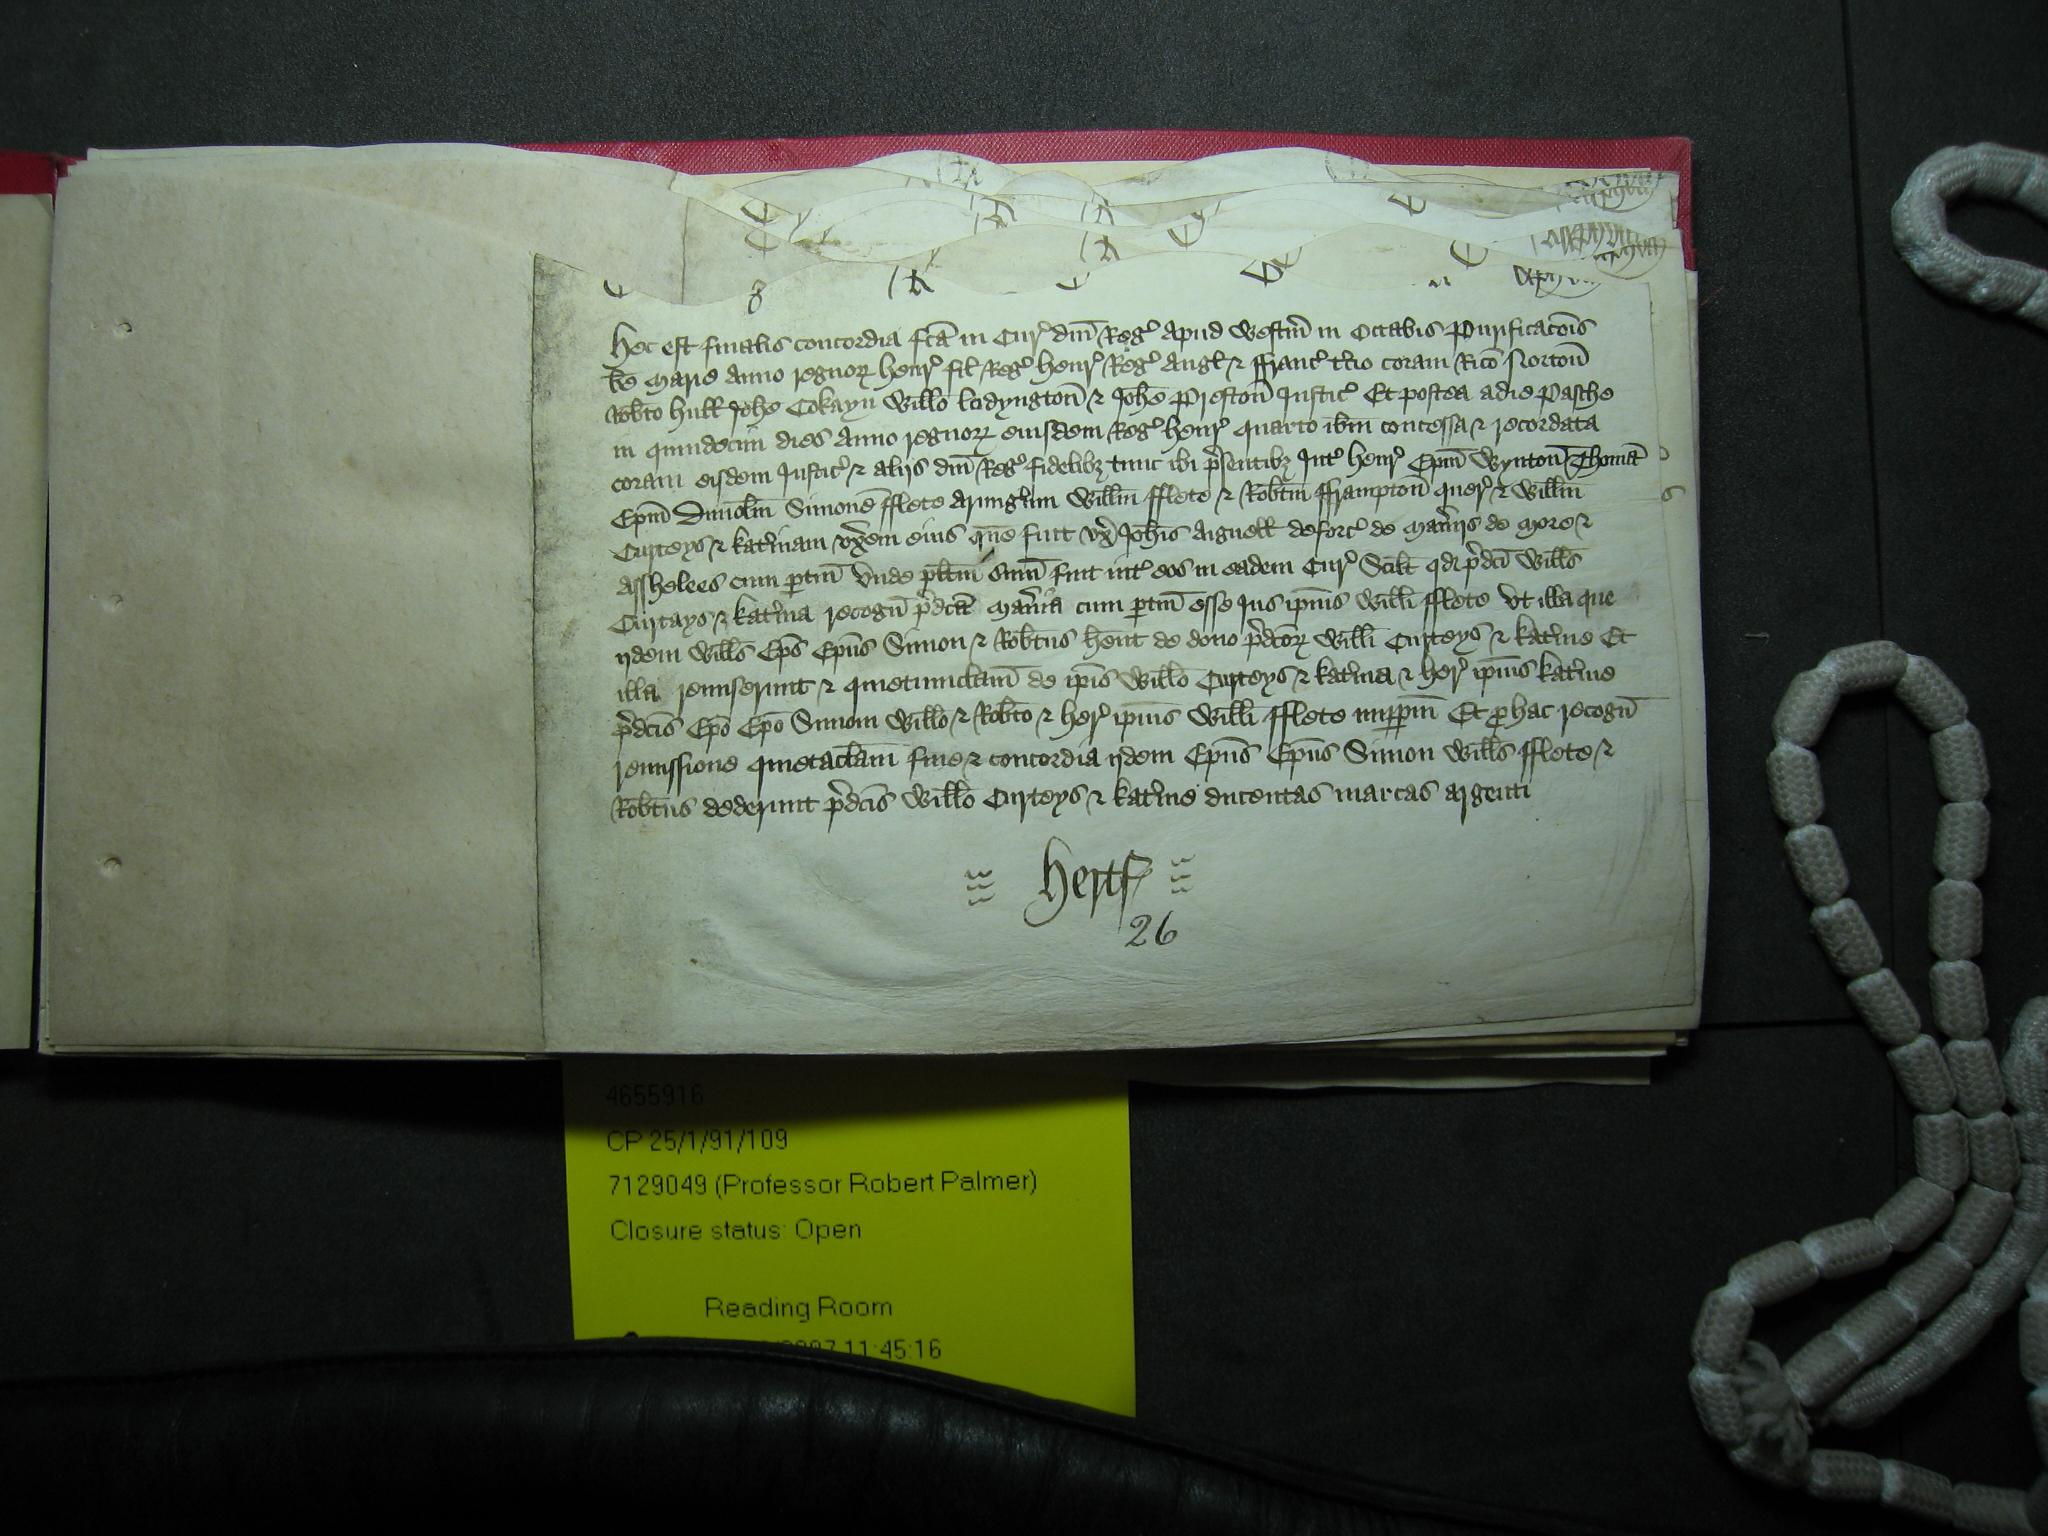 Hec est finalis concordia fc̄a in Cur' dn̄i Reg' apud Westm̄ in Octabis Purificac̄ois
b̄e Marie anno regnoꝝ Henr' fil' Reg' Henr' Reg' Angl' ⁊ Franc' t'cio coram Ric̄o Norton̄
Rob̄to Hull Joh̄e Cokayn Will̄o Lodyngton̄ ⁊ Joh̄e Preston̄ Justic' Et postea a die Pasche
in quindecim dies anno regnoꝝ eiusdem Reg' Henr' quarto ib̄m concessa ⁊ recordata
coram eisdem Justic' ⁊ aliis dn̄i Reg' fidelibꝫ tunc ibi p'sentibꝫ Int' Henr' Ep̄m Wynton̄ Thomā
Ep̄m Dunolm̄ Simonē fflete Armig'um Will̄m fflete ⁊ Rob̄tm fframpton̄ quer' ⁊ Will̄m
Curteys ⁊ Kat'inam vx̄em eius que fuit vx̄ Joh̄is Aignell deforc' de Man'iis de More ⁊
Asshelees cum ptin̄ vnde pl̄itm̄ sum̄ fuit int' eos in eadem Cur' Scil̄t qd p'dc̄i Will̄s
Curtays ⁊ Kat'ina recogn̄ p'dc̄a Man'ia cum ptin̄ esse Jus ip̄ius Will̄i fflete vt illa que
ijdem Will̄s Ep̄s Ep̄us Simon ⁊ Rob̄tus hent de dono p'dc̄oꝝ Will̄i Curteys ⁊ Kat'ine Et
illa remiserunt ⁊ quietumclam̄ de ip̄is Will̄o Curteys ⁊ Kat'ina ⁊ her' ip̄ius Kat'ine
p'dc̄is Ep̄o Ep̄o Simoni Will̄o ⁊ Rob̄to ⁊ her' ip̄ius Will̄i fflete imppm̄ Et ꝓ hac recogn̄
remissione quietaclam̄ fine ⁊ concordia ijdem Ep̄us Ep̄us Simon Will̄s fflete ⁊
Rob̄tus dederunt p'dc̄is Will̄o Curteys ⁊ Kat'ine ducentas marcas argenti
Hertf'
26
4655916
CP 25/1/91/109
7129049 (Professor Robert Palmer)
Closure status: Open
Reading Room
11:45:16